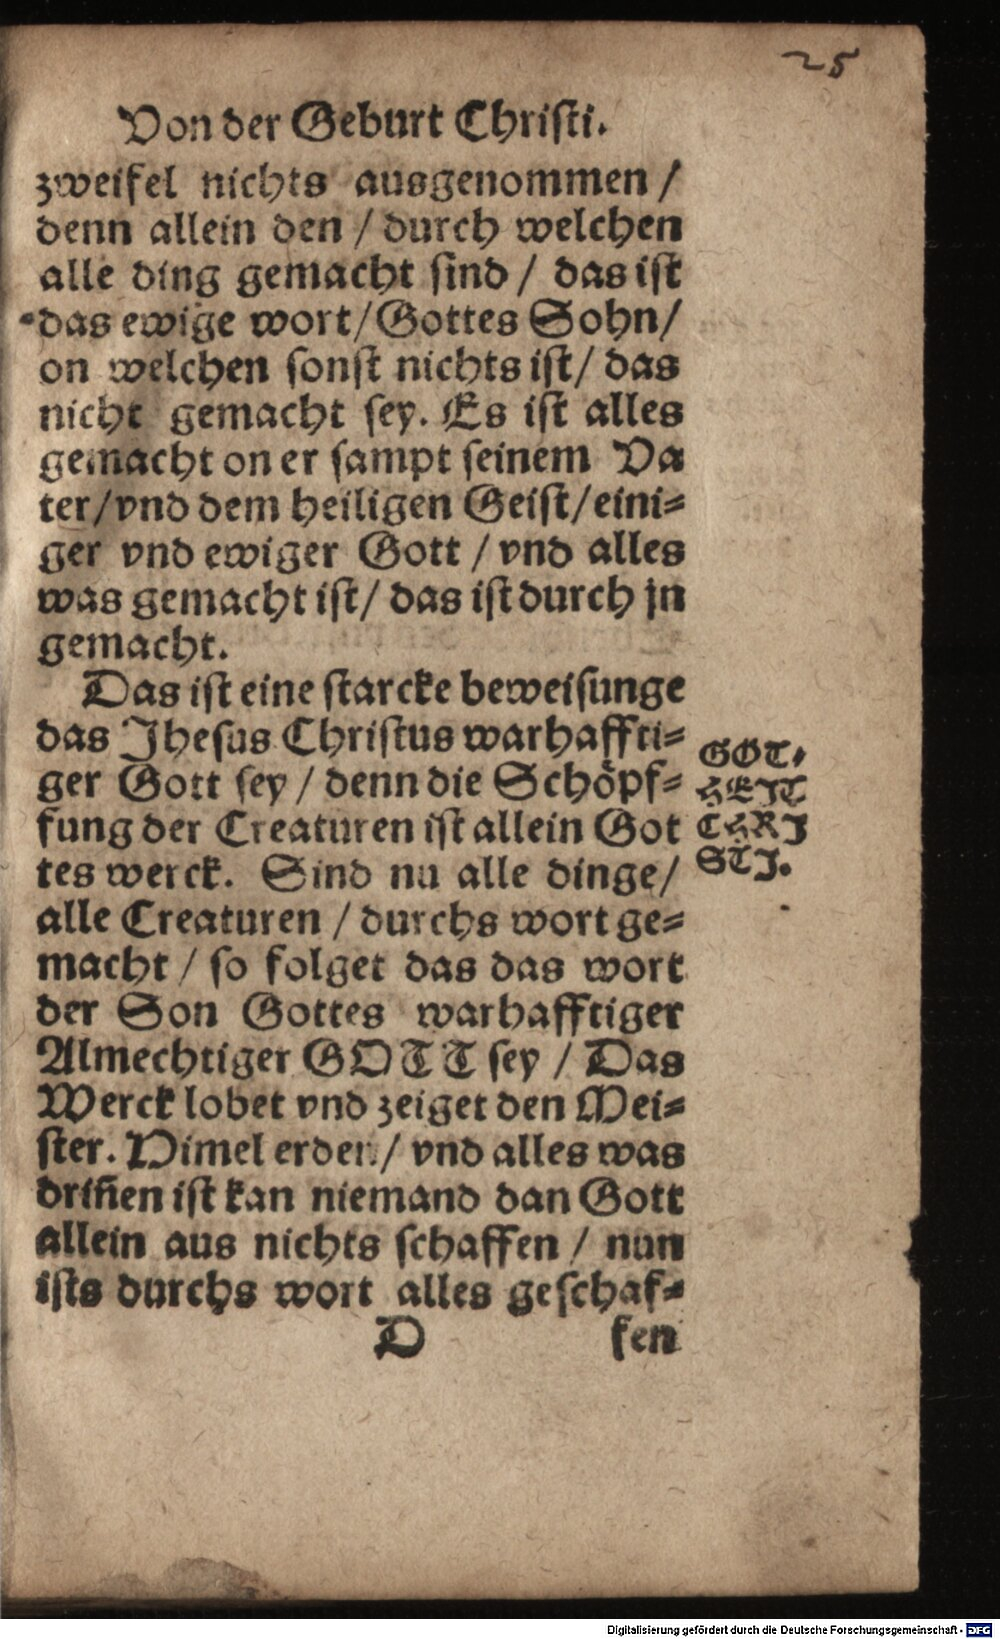 25
Von der Geburt Christi.
zweifel nichts ausgenommen /
denn allein den / durch welchen
alle ding gemacht sind / das ist
das ewige wort / Gottes Sohn /
on welchen sonst nichts ist / das
nicht gemacht sey. Es ist alles
gemacht on er sampt seinem Va
ter / vnd dem heiligen Geist / eini=
ger vnd ewiger Gott / vnd alles
was gemacht ist / das ist durch jn
gemacht.
Das ist eine starcke beweisunge
das Jhesus Christus warhaffti=
ger Gott sey / denn die Schöpf=
fung der Creaturen ist allein Got
tes werck. Sind nu alle dinge /
alle Creaturen / durchs wort ge=
macht / so folget das das wort
der Son Gottes warhafftiger
Almechtiger GOTT sey / Das
Werck lobet vnd zeiget den Mei=
ster. Himel erden / vnd alles was
driñen ist kan niemand dan Gott
allein aus nichts schaffen / nun
ists durchs wort alles geschaf=
D fen
GOT,
HEIT
CHRI
STI.
Digitalisierung gefördert durch die Deutsche Forschungsgemeinschaft - DFG